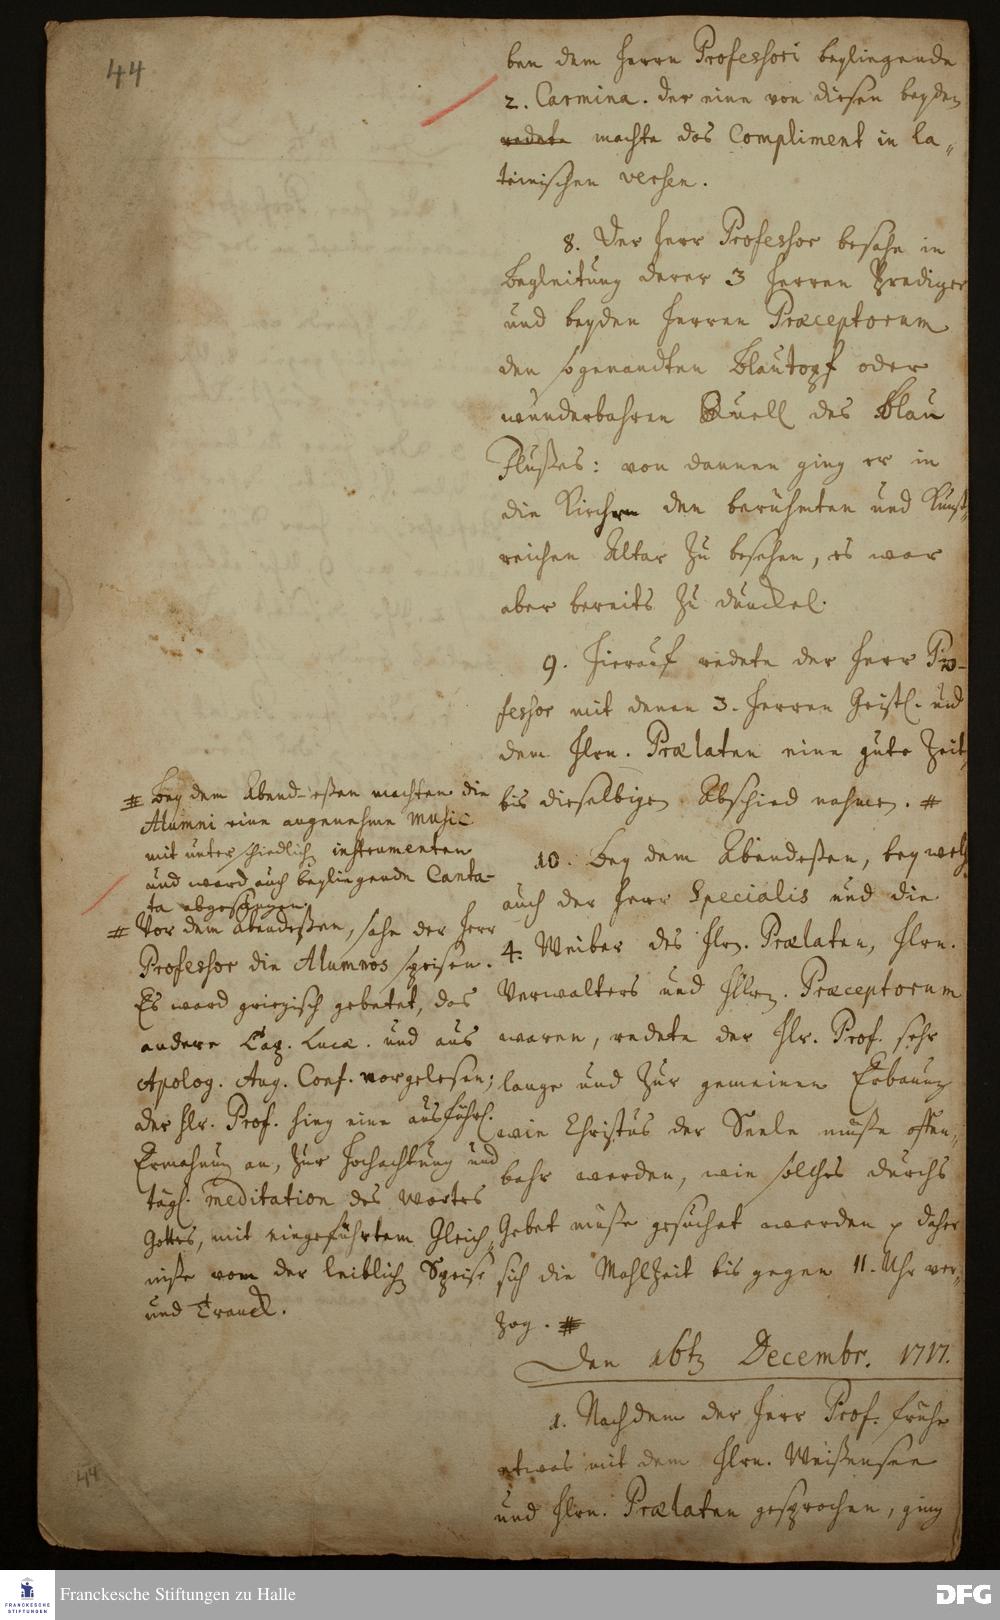 44
ben dem Herrn Professori beyliegende
2. Carmina. der eine von diesen beyden
redete machte das Compliment in la-
teinischen versen.
8. Der Herr Professor besahe in
Begleitung derer 3 Herren Prediger
und beyden Herren Præceptorum
den sogenandten Blautopf oder
wunderbahren Quell des Blau
Flußes: von dannen ging er in
die Kirchen den berühmten und Kunst-
reichen Altar zu besehen, es war
aber bereits zu dunckel.
9. Hierauf redete der Herr Pro-
fessor mit denen 3. Herren Geistl. und
dem Hrn. Prælaten eine gute Zeit,
bis dieselbigen Abschied nahmen. #
10. Bey dem Abendeßen, bey welch.
auch der Herr Specialis und die
4. Weiber des Hrn. Prælaten, Hrn.
Verwalters und Hrn. Præceptorum
waren, redete der Hr. Prof. sehr
lange und zur gemeinen Erbauung
wie Christus der Seele müße offen-
bahr werden, wie solches durchs
Gebet müße gesuchet werden p daher
sich die Mahlzeit bis gegen 11. Uhr ver-
zog. #
Den 16ten Decembr. 1717.
1. Nachdem der Herr Prof. frühe
etwas mit dem Hrn. Weißensee
und Hrn. Prælaten gesprochen, ging
# Bey dem Abend-eßen machten die
Alumni eine angenehme Music
mit unterschiedlich instrumenten
und ward auch beyliegende Canta-
ta abgesungen.
# Vor dem Abendeßen, sahe der Herr
Professor die Alumnos speisen.
Es ward griegisch gebetet, das
andere Cap. Lucæ. und aus
Apolog. Aug. Conf. vorgelesen;
der Hr. Prof. hing eine ausführl.
Ermahnung an, zur Hochachtung und
tägl. meditation des wortes
Gottes, mit eingeführtem Gleich-
niße von der leiblich Speise
und Tranck.
44
FRANCKESCHE
STIFTUNGEN
Franckesche Stiftungen zu Halle
DFG